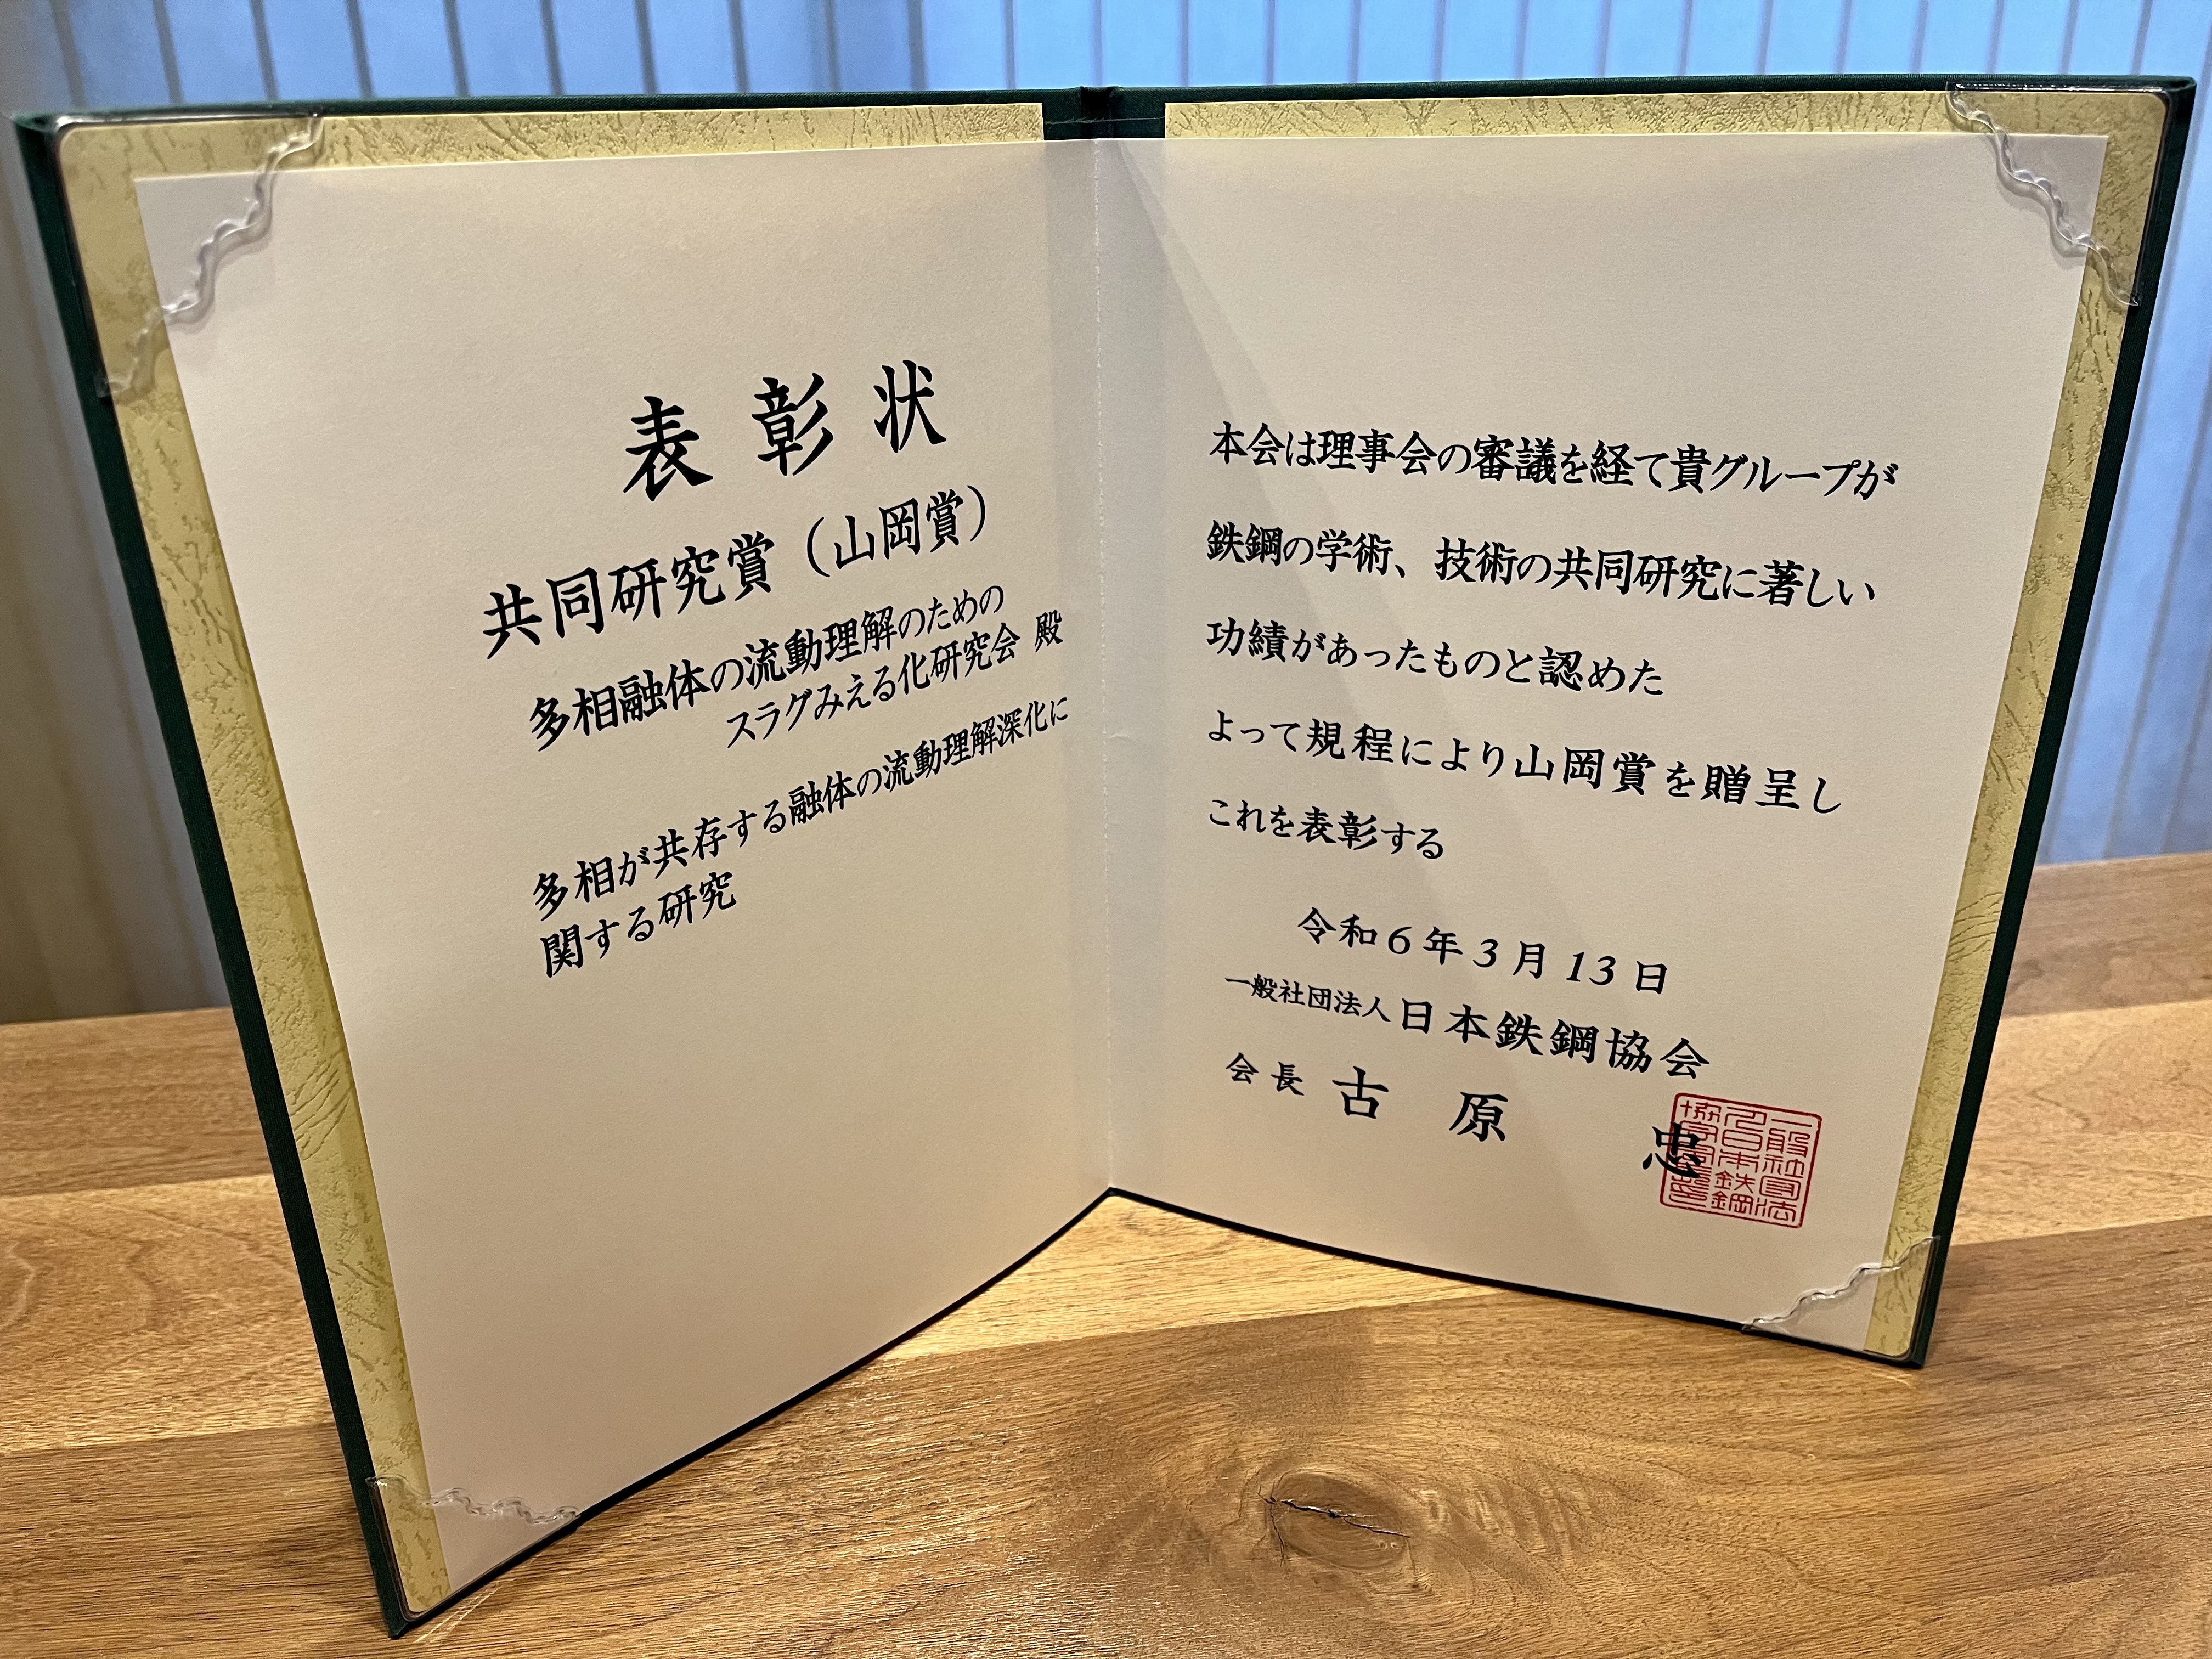 表彰状
共同研究賞（山岡賞）
多相融体の流動理解のための
スラグみえる化研究会 殿
多相が共存する融体の流動理解深化に
関する研究
本会は理事会の審議を経て貴グループが
鉄鋼の学術、技術の共同研究に著しい
功績があったものと認めた
よって規程により山岡賞を贈呈し
これを表彰する
令和6年3月13日
一般社団法人日本鉄鋼協会
会長 古原 忠
一般社団法
人日本鉄鋼
協会会長印